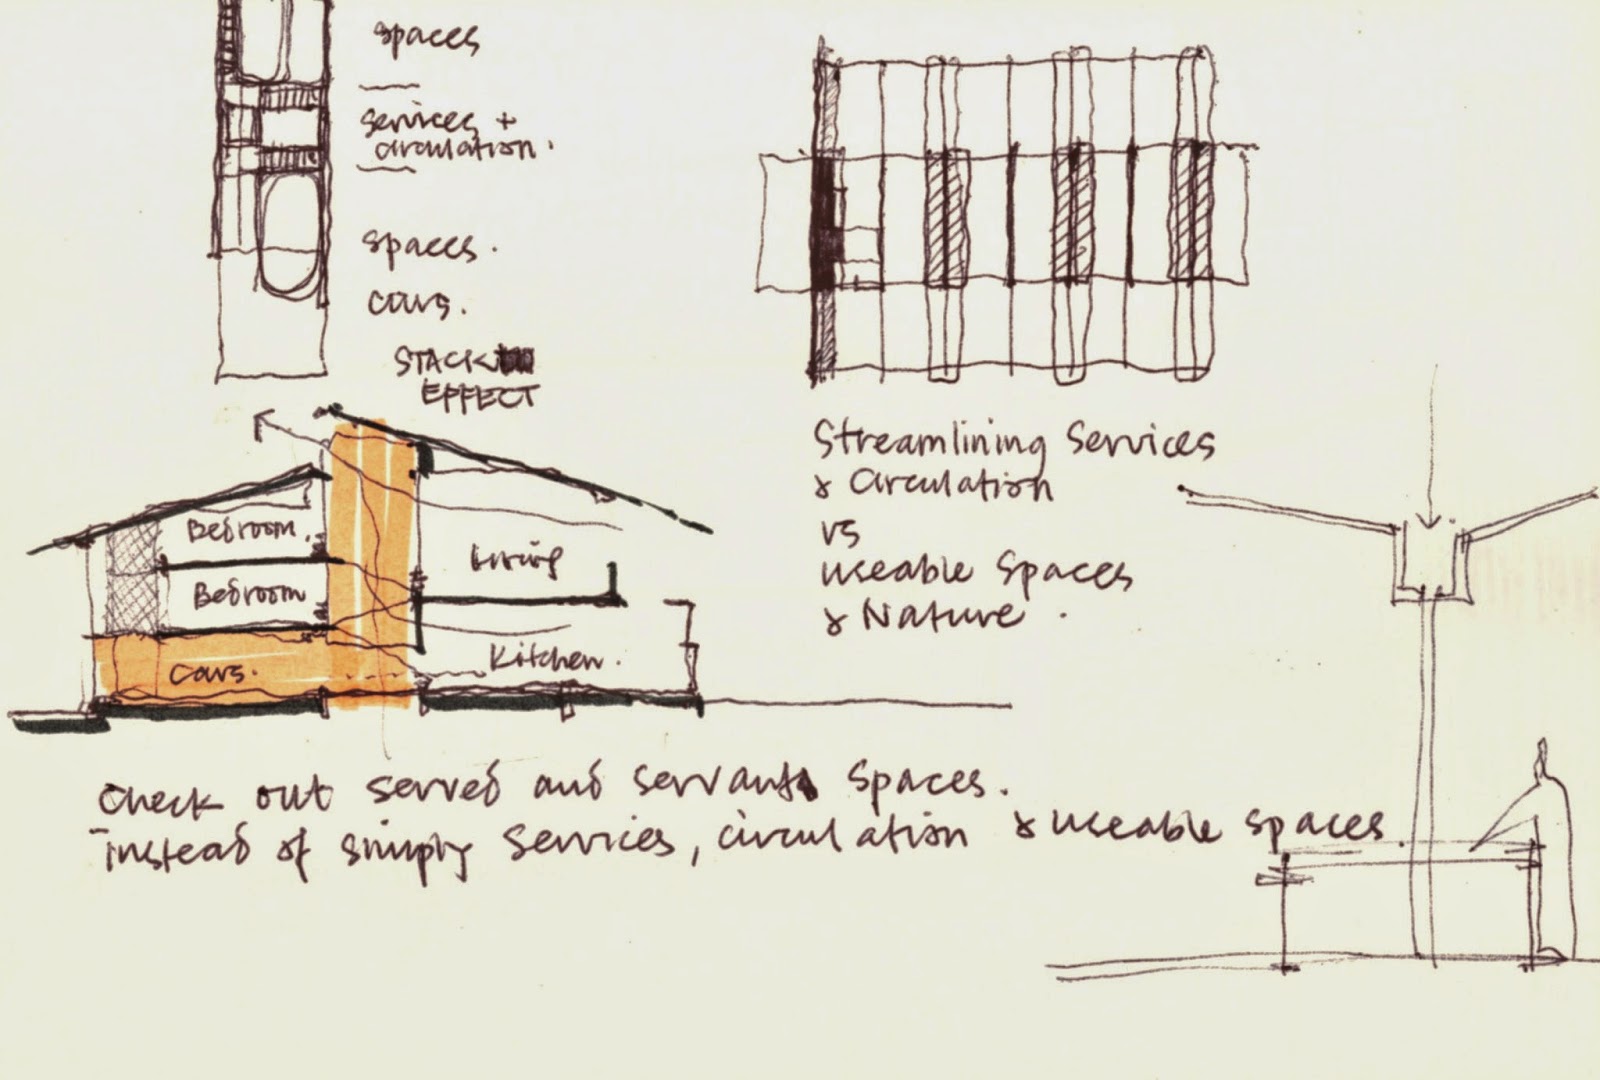 spaces
services +
circulation.
spaces.
cars.
STACK
EFFECT
Bedroom.
Bedroom
cars.
Living
Kitchen.
Streamlining Services
& Circulation
vs
useable spaces
& Nature.
check out served and servants spaces.
instead of simply services, circulation & useable spaces